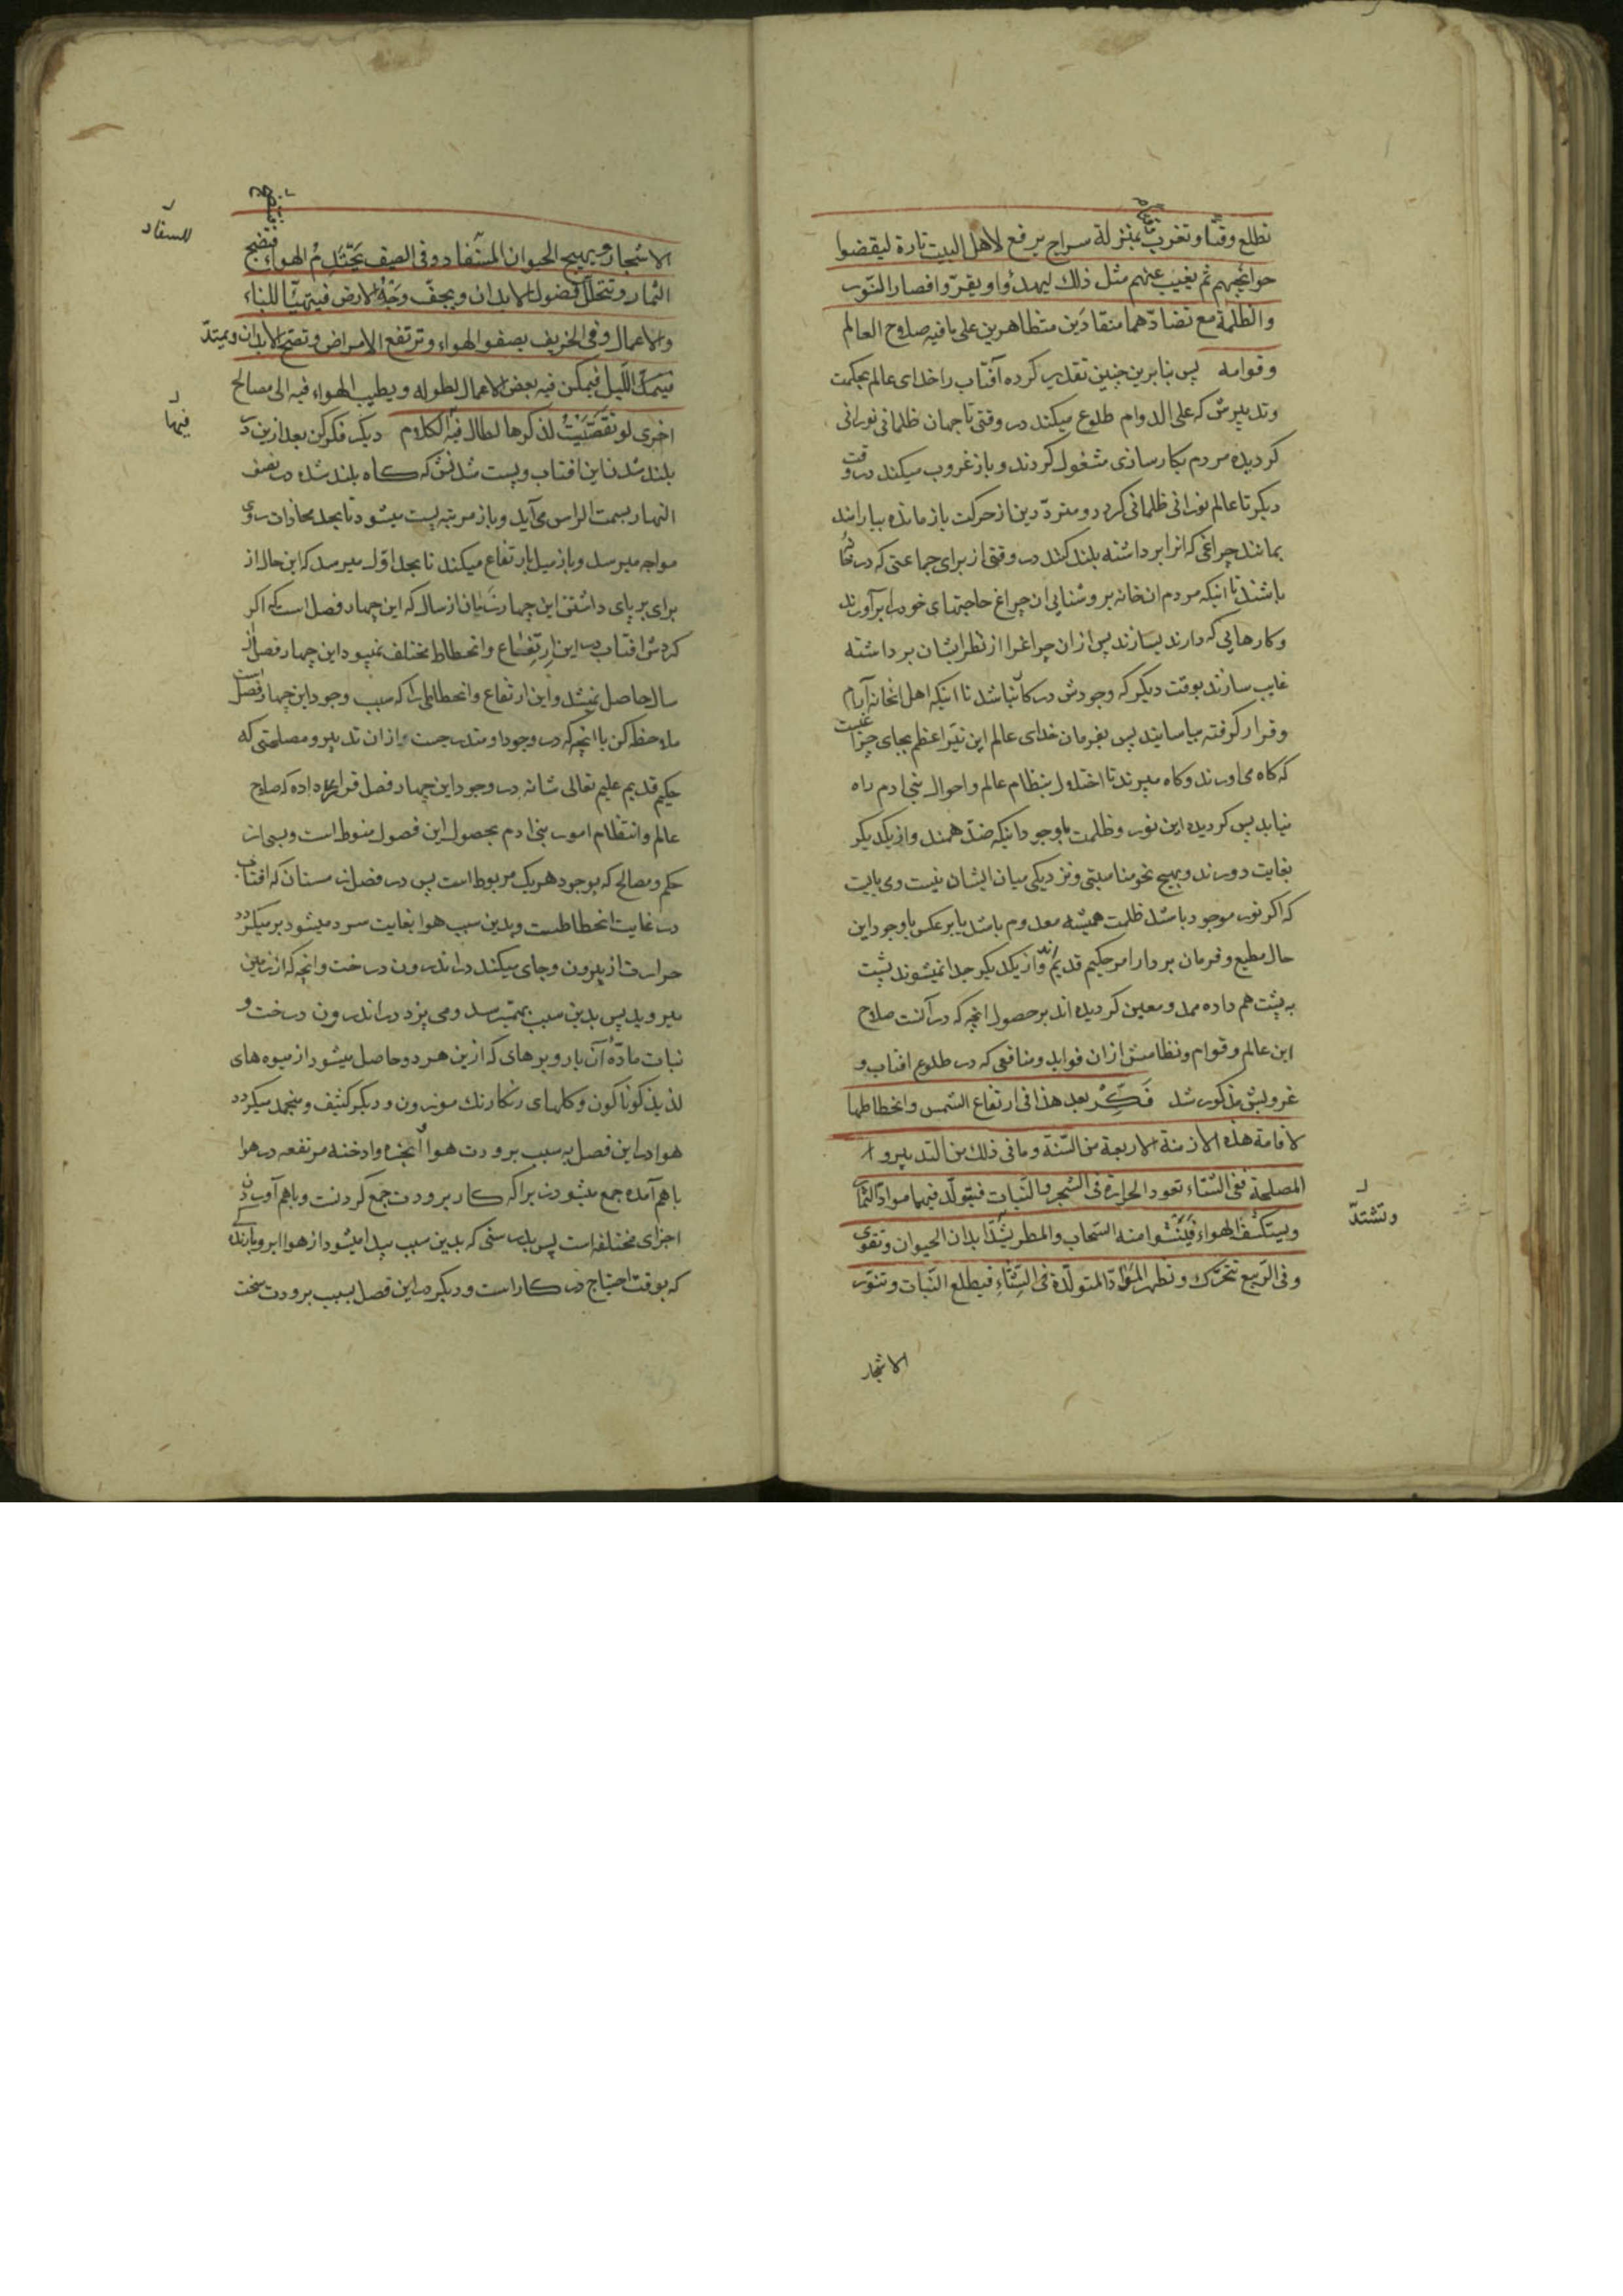 تطلع وقتا و تغرب وقتا بمنزلة سراج يرفع لاهل البيت تارة ليقضوا
حوائجهم ثم يغيب عنهم مثل ذلك ليهدئوا و يقرّوا فصار النّور
والظلمة مع تضادّهما منقادَين متظاهرين على ما فيه صلاح العالم
وقوامه پس بنابرين چنين تقدير كرده آفتاب را خداى عالم بحكمت
وتدبيرش كه على الدوام طلوع ميكند در وقتى تا جهان ظلمانى نورانى
كرديده مردم بكارسازى مشغول كردند و باز غروب ميكند در وقت
ديكر تا عالم نورانى ظلمانى كردد و متردّدين از حركت باز مانده بيارامند
بمانند چراغى كه انرا برداشته بلند كنند در وقتى از براى جماعتى كه در خانه
باشند تا اينكه مردم ان خانه بروشنايى ان چراغ حاجتهاى خود را برآورند
وكارهايى كه دارند بسازند پس ازان چراغرا از نظر ايشان برداشته
غايب سازند بوقت ديكر كه وجودش در كار نباشد تا اينكه اهل انخانه آرام
وقرار كرفته بياسايند پس بفرمان خداى عالم اين نيّر اعظم بجاى چراغيست
كه كاه مى اورند و كاه ميبرند تا اختلال بنظام عالم و احوال بنى ادم راه
نيابد پس كرديده اين نور و ظلمت با وجود اينكه ضدّ همند و از يكديكر
بغايت دورند و بهيچ نحو مناسبتى و نزديكى ميان ايشان نيست و مى بايست
كه اكر نور موجود باشد ظلمت هميشه معدوم باشد يا برعكس با وجود اين
حال مطيع و فرمان بردار امر حكيم قديم‌اند و از يكديكر جدا نميشوند پشت
به پشت هم داده ممد و معين كرديده اند بر حصول انچه كه در آنست صلاح
اين عالم و قوام و نظامش ازان فوايد و منافعى كه در طلوع افتاب و
غروبش مذكور شد فَكِّرْ بعد هذا فى ارتفاع الشمس وانحطاطها
لاقامة هذه الازمنة الاربعة من السّنة وما فى ذلك من التدبير و
المصلحة ففى الشتاء تعود الحرارة فى الشجر والنّبات فيتولّد فيهما موادّ الثمار
ويستكثف الهواء فينشوا منه السّحاب والمطر يشدّ ابدان الحيوان وتقوى
وتشتدّ
وفى الرّبيع تتحرّك و تظهر الموادّ المتولّدة فى الشّتاء فيطلع النّبات وتنوّر
الاشجار
الاشجار و يهيج الحيوان للسّفاد و فى الصيف يحتدم الهواء فتنضج
للسفاد
الثمار وتتحلّل فضول الابدان ويجفّ وجه الارض فيتهيّأ للبناء
والاعمال و فى الخريف يصفو الهواء وترتفع الامراض وتصح الابدان ويمتدّ
الليل فيمكن فيه بعض الاعمال لطوله ويطيب الهواء فيه الى مصالح
فيها
اخرى لو تقصّيت لذكرها لطال فيه الكلام ديكر فكر كن بعد ازين در
بلند شدن اين افتاب و پست شدنش كه كاه بلند شده در نصف
النهار بسمت الراس مى آيد و باز مرتبه پست ميشود تا بحد محاذات روى
مواجه ميرسد و باز ميل بارتفاع ميكند تا بحد اوّل ميرسد كه اين حال از
براى بر پاى داشتن اين چهار زمان از سال كه اين چهار فصل است كه اكر
كردش افتاب در اين ارتفاع و انحطاط مختلف نميبود اين چهار فصل از
سال حاصل نميشد و اين ارتفاع و انحطاطى را كه سبب وجود اين چهار فصل است
ملاحظه كن با انچه كه در وجود او مندرجست از ان تدبير و مصلحتى كه
حكيم قديم عليم تعالى شانه در وجود اين چهار فصل قرار داده كه صلاح
عالم و انتظام امور بنى ادم بحصول اين فصول منوط است و بسى از
حكم و مصالح كه بوجود هر يك مربوط است پس در فصل زمستان كه افتاب
در غايت انحطاطست و بدين سبب هوا بغايت سرد ميشود برميكردد
حرارت از بيرون و جاى ميكند در اندرون درخت و انچه كه از زمين
ميرويد پس بدين سبب بهم ميرسد و مى پزد در اندرون درخت و
نبات مادّهٔ آن بار و برهاى كه ازين هر دو حاصل ميشود از ميوه هاى
لذيذ كوناكون و كلهاى رنكارنك موزون و ديكر كثيف و منجمد ميكردد
هوا در اين فصل به سبب برودت هوا و ابخره و ادخنه مرتفعه در هوا
باهم آمده جمع ميشود زيراكه كار برودت جمع كردنست و باهم آوردن
اجزاى مختلفه است پس بدرستى كه بدين سبب پيدا ميشود از هوا ابر و بارنده
كه بوقت احتياج در كار است و ديكر در اين فصل بسبب برودت سخت